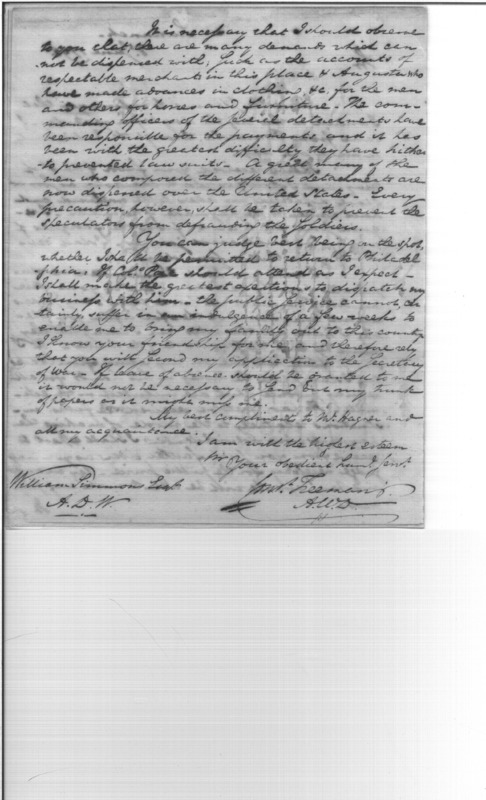 It is necessary that I should observe
to you that, there are many demands which can
not be dispensed with, such as the accounts of
respectable merchants in this place & Augusta, who
have made advances in clothing &c, for the men
and others for horses and furniture. The com-
manding officers of the several detachments have
been responsible for the payments and it has
been with the greatest difficulty they have hither
to prevented law suits. A great many of the
men who composed the different detachments are
now dispersed over the United States. Every
precaution, however, shall be taken to prevent the
speculators from defrauding the soldiers.
You can judge best being on the spot,
whether I shall be permitted to return to Philadel
phia. If Col. should attend as I expect
I shall make the greatest exertions to dispatch my
business with him. the public service cannot, cer
tainly suffer in an indulgence of a few weeks to
enable me to bring my family out to this country
I know your friendship for me, and therefore rely
that you will second my application to the Secretary
of War. If leave of absence should be granted to me
it would not be necessary to send out my trunk
of papers as it might miss me.
My best compliments to Mr. Hagner and
all my acquaintance.
I am with the highest esteem
Sir Your obedient humb. servt.
William Simmons Esqr.
A.D.W.
Freeman
A.W.D